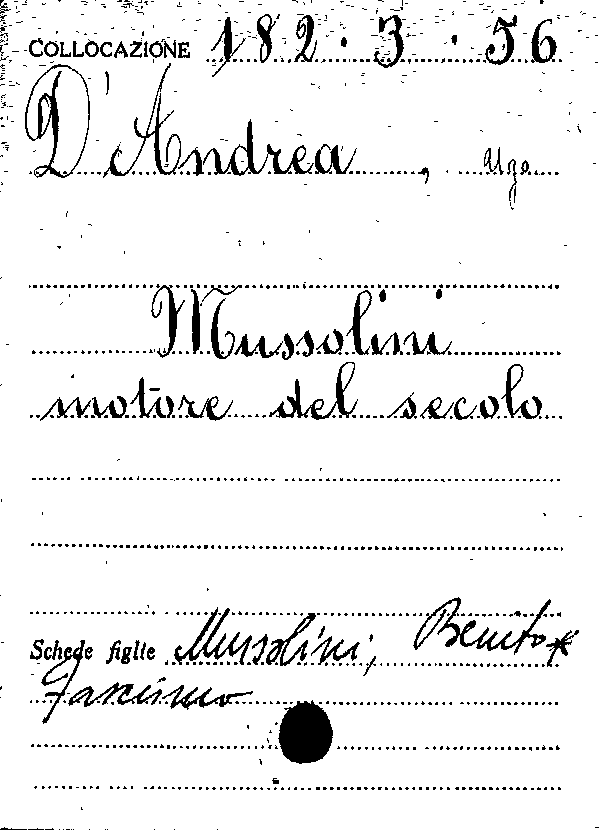 COLLOCAZIONE 182.3.56
D'Andrea, Ugo
Mussolini
motore del secolo
Schede figlie Mussolini, Benito*
Fascismo